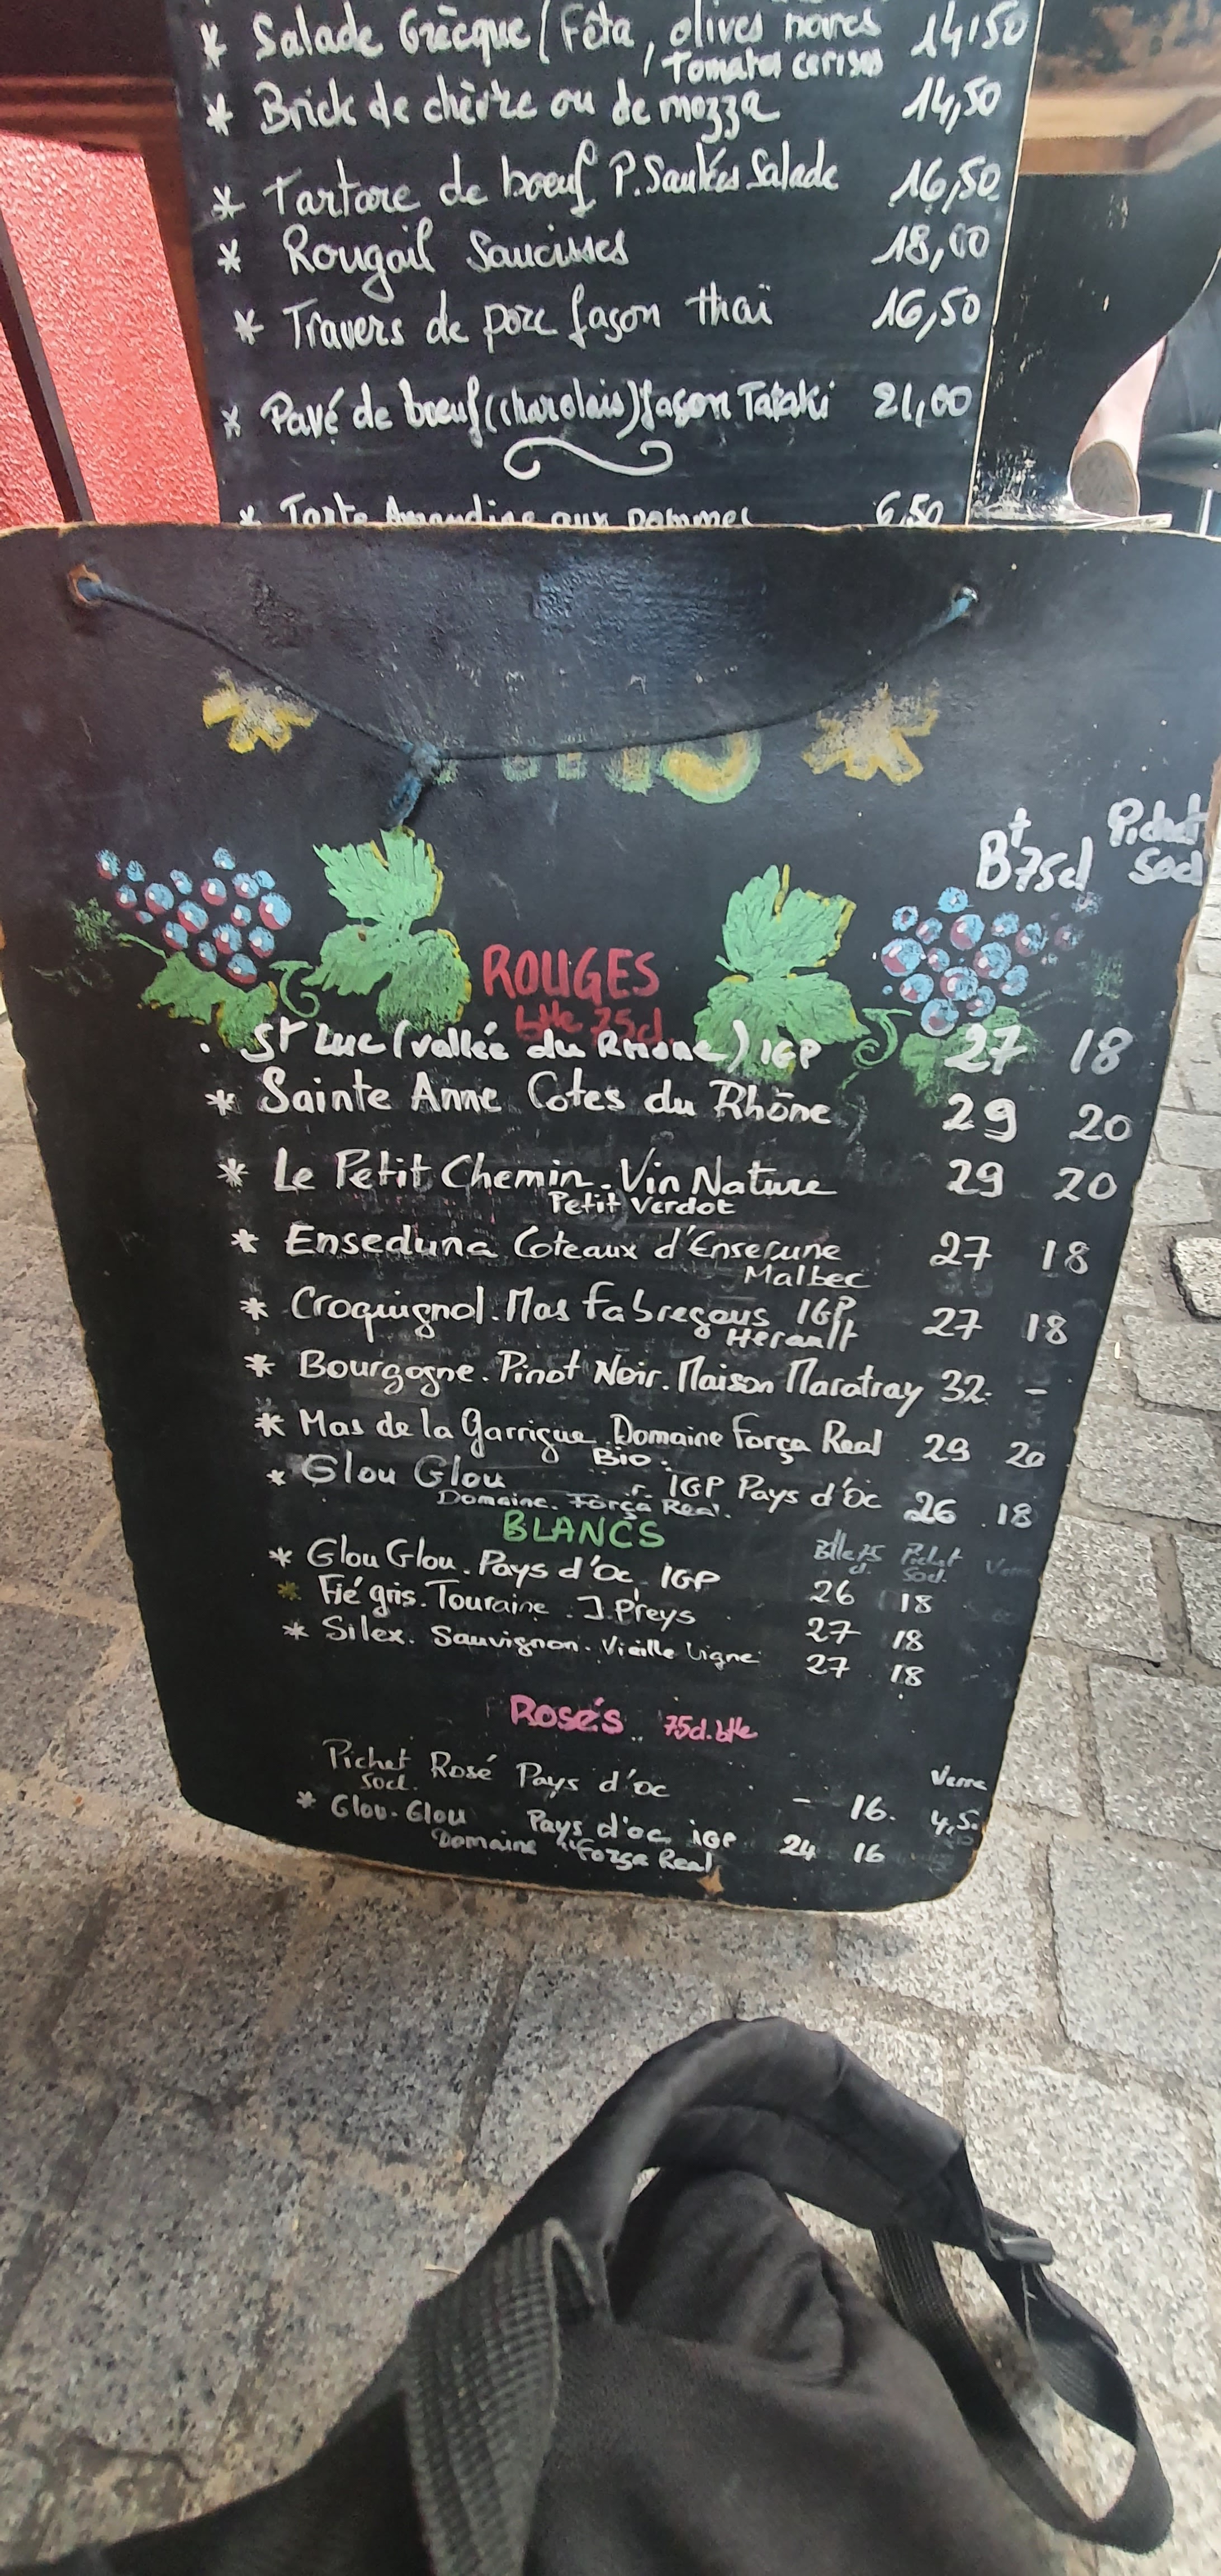 * Salade Grècque (Fêta, olives noires 14,50
/ Tomates cerises
* Brick de chèvre ou de mozza 14,50
* Tartare de bœuf P. Sautées Salade 16,50
* Rougail Saucisses 18,00
* Travers de porc façon thaï 16,50
* Pavé de bœuf (charolais) façon Tataki 21,00
* Tarte Amandine aux pommes 6,50
Pichet
Bt 75cl 50cl
ROUGES
btle 75cl
. St Luc (vallée du Rhône) IGP 27 18
* Sainte Anne Cotes du Rhône 29 20
* Le Petit Chemin. Vin Nature 29 20
Petit Verdot
* Enseduna Coteaux d'Enserune 27 18
Malbec
* Croquignol. Mas Fabregous IGP 27 18
Hérault
* Bourgogne. Pinot Noir. Maison Maratray 32 -
* Mas de la Garrigue Domaine Força Real 29 20
Bio.
* Glou Glou IGP Pays d'Oc 26 18
Domaine. Força Real.
BLANCS Btlle 75 cl. Pichet 50cl. Verre
* Glou Glou. Pays d'Oc IGP 26 18
* Fié gris. Touraine. J. Preys 27 18
* Silex. Sauvignon. Vieille Vigne 27 18
Rosés 75cl. btle
Verre
Pichet Rosé Pays d'oc - 16. 4,5.
50cl.
* Glou-Glou Pays d'oc iGP 24 16
Domaine Força Real